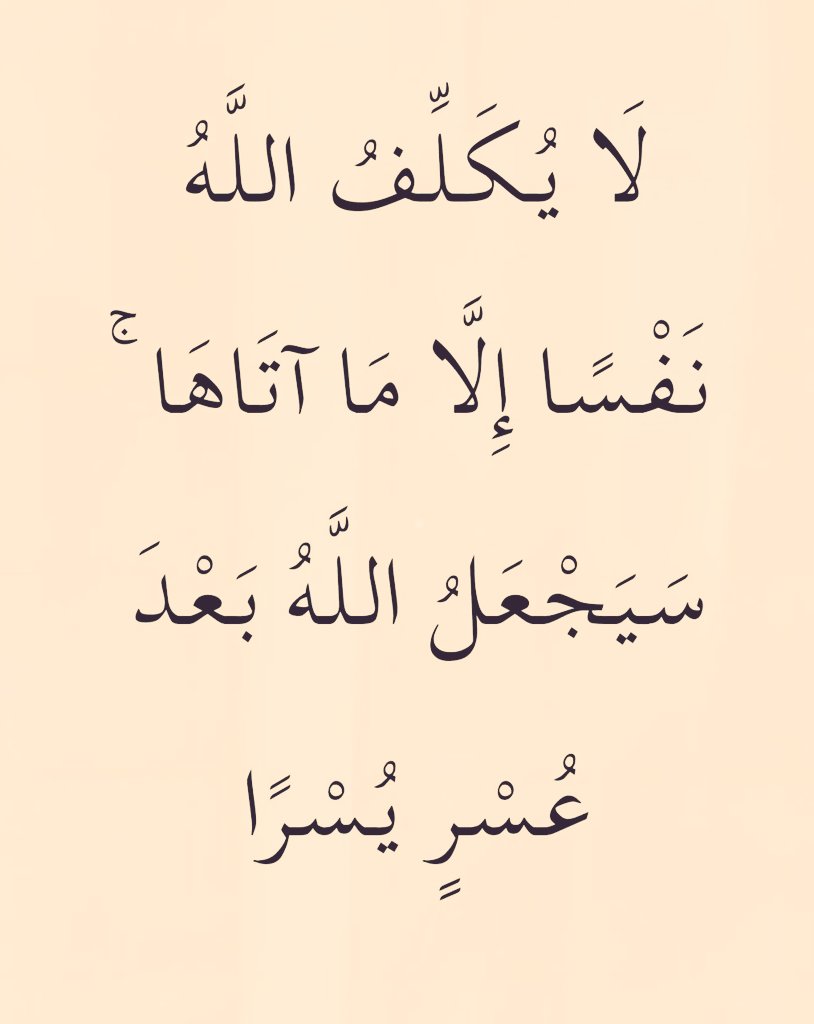 لَا يُكَلِّفُ اللَّهُ
نَفْسًا إِلَّا مَا آتَاهَا ۚ
سَيَجْعَلُ اللَّهُ بَعْدَ
عُسْرٍ يُسْرًا